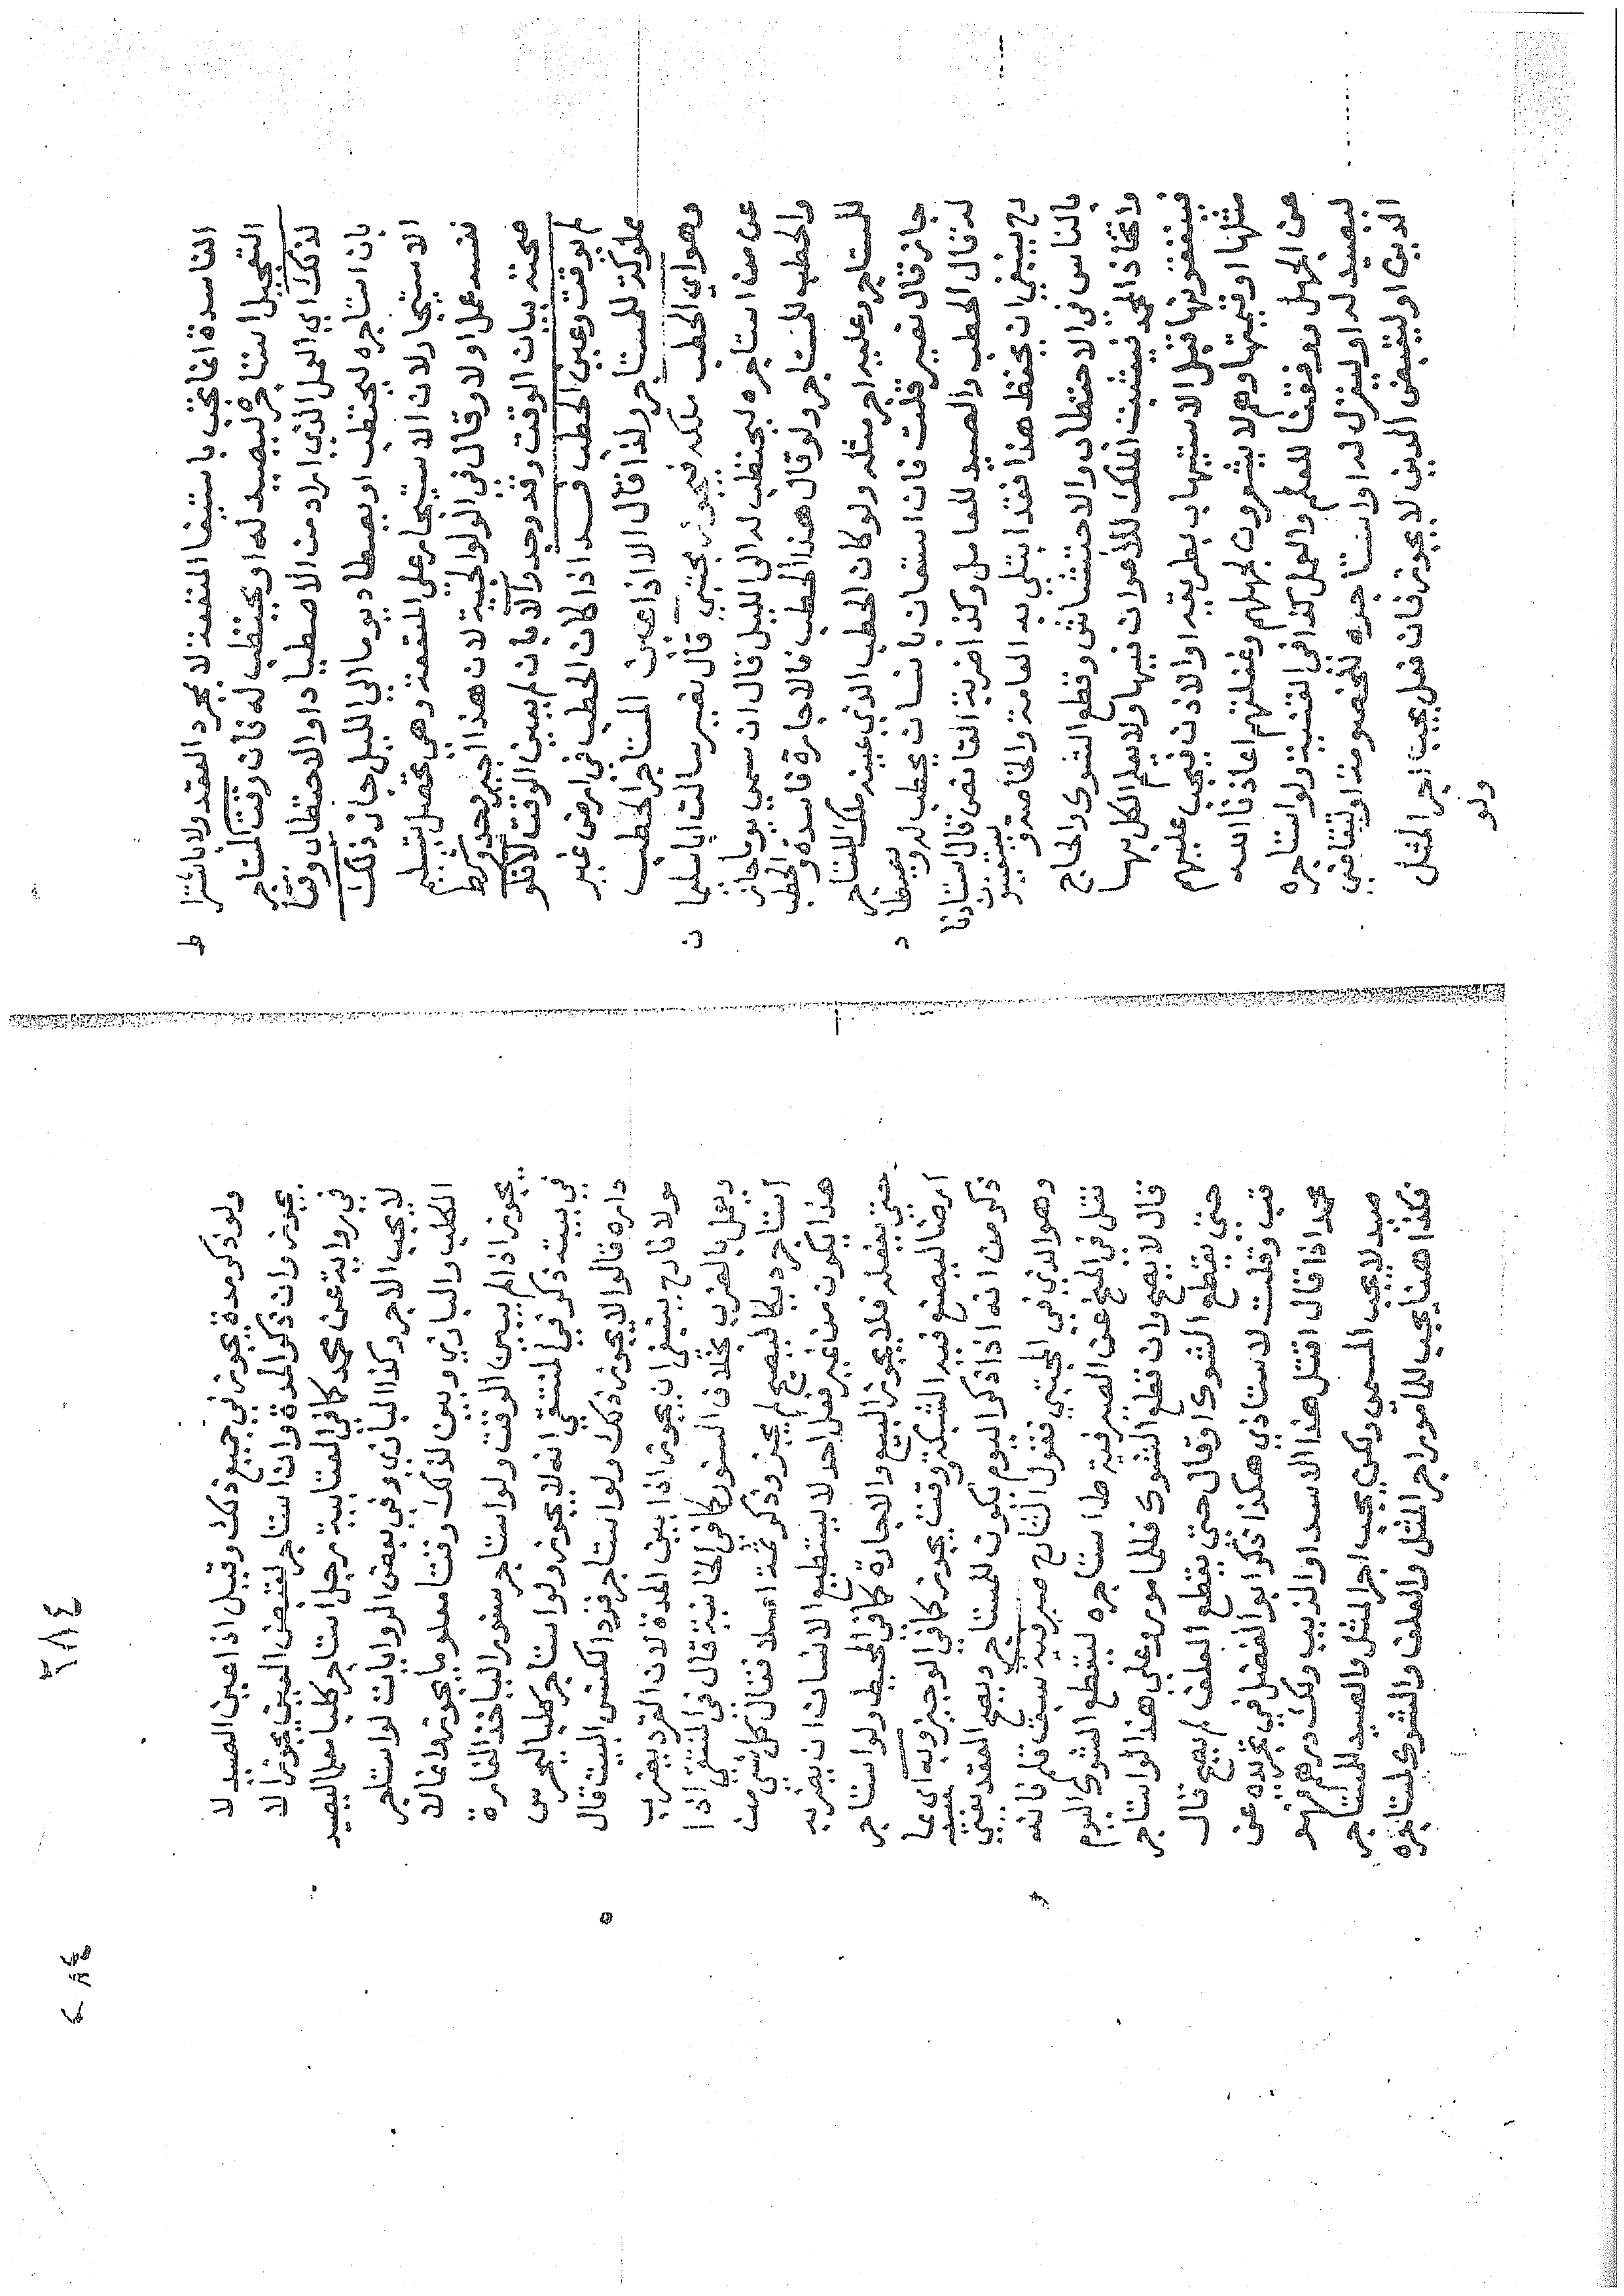 الفاسدة انما تجب باستيفا المنفعة لا بمجرد العقد ولا باشترا ط
التعجيل استاجره ليصيد له او يحتطب له فان وقت المستاجر
لذلك اي العمل الذي اراد من الاصطياد او الاحتطاب وقتا
بان استاجره ليحتطب او يصطاد يوما الي الليل جاز ذلك
الاستيجار لان الاستيجار على المنفعة وهي تحصل بتسليم
نفسه عمل او لا وقال في الولوالجية لان هذا اجير وحد وشرط
صحته بيان الوقت وقد وجد والا بان لم يبين الوقت لا فلو
لم يوقت وعين الحطب فسد اذا كان الحطب في ارض غير
مملوكة للمستاجر ولذا قال الا اذا عين المستاجر الحطب
وهو اي الحطب ملكه فيجوز مجتبي قال نصير سالت ابا سليما ن
عن من استاجره ليحتطب له الى الليل قال ان سمي يوما جائز
والحطب للمستاجر ولو قال هذا الحطب فالاجارة فاسدة والحطب
للمستاجر وعليه اجر مثله ولو كان الحطب الذي عينه ملك المستاجر
جاز قال نصير قلت فان استعان بانسان يحطب له ويصطا د
له قال الحطب والصيد للعامل وكذا ضربة القانص قال استاذنا
رح ينبغي ان يحفظ هذا فقد ابتلي به العامة والخاصة و يستعينون
بالناس في الاحتطاب والاحتشاش وقطع الشوك والحاج
واتخاذ المجد فيثبت الملك للأعوان فيها ولا يعلم الكل بها
فينفقونها قبل الاستيهاب بطريقه او الاذن فيجب عليهم
مثلها او قيمتها وهم لا يشعرون لجهلهم وغفلتهم اعاذنا الله
عن الجهل ووفقنا للعلم والعمل كذا في القنية ولو استاجره
ليصيد له او ليغزل له او استاجره لخصومة او ليتقاضي
الدين او ليقبض الدين لا يجوز فان فعل يجب اجر المثل
ولو
٢٨٤
ولو ذكر مدة يجوز في جميع ذلك وقيل اذا عين الصيد لا
يجوز وان ذكر المدة واذا استاجر لقبض العين يجوز الا
في رواية عن محمد كما في العتابية رجل استاجر كلبا معلما ليصيد
لا يجب الاجر وكذا البازي وفي بعض الروايات لو استاجر
الكلب والبازي وبين لذلك وقتا معلوما يجوز انما لا
يجوز اذا لم يبين الوقت ولو استاجر سنورا لياخذ الفارة
في بيته ذكر في المنتقي انه لا يجوز ولو استاجر كلبا ليحرس
داره قالوا لا يجوز ذلك ولو استاجر قردا لكنس البيت قال
مولانا رح ينبغي ان يجوز اذا بين المدة لان القرد يضرب
ويعمل بالضرب بخلاف السنور كما في الخانية قال في المنتقي اذا
استاجر ديكا ليصيح لم يجز وذكر ثمة اصلا فقال كل شي من
هذا يكون من غير فعل احد لا يستطيع الانسان ان يضربه
حتي يفعله فلا يجوز البيع والاجارة كما في المحيط ولو استاجر
ارضا ليضع فيه الشبكة ووقت يجوز كما في الوجيز وبه اي بما
ذكر من انه اذا ذكر اليوم يكون للمستاجر ويصح العقد يفتي
وهو الذي في المجتبي فقول الشارح صيرفية سبق قلم فانه
نقل في المنح عن الصيرفية ط استاجره ليقطع الشوك اليوم
قال لا يصح وان قطع الشوك فللمامور وعلي هذا لو استاجر
حتي يقطع الشوك او قال حتي يقطع العلف لم يصح قال
قب وقلت لاستاذي هكذا ذكر ابو الفضل في تجريده عن
محمد اذا قال اقتل هذا الاسد او الذيب ولك درهم فهو
صيد لا يجب المسمي ولكن يجب اجر المثل والصيد للمستاجر
فكذا هنا يجب للمامور اجر المثل والعلف والشوك للمستاجره
٢٨٤